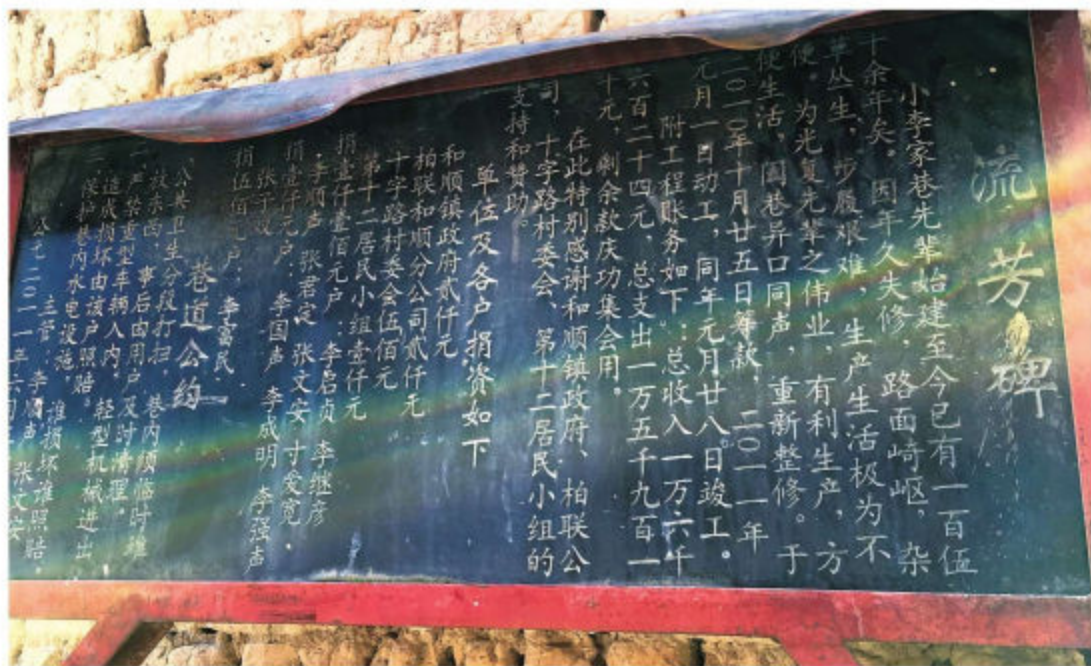 流芳碑
小李家巷先辈始建至今已有一百伍
十余年矣。因年久失修，路面崎岖，杂
草丛生，步履艰难，生产生活极为不
便。为光复先辈之伟业，有利生产，方
便生活，阖巷异口同声，重新整修。于
二〇一〇年十月廿五日筹款，二〇一一年
元月一日动工，同年元月廿八日竣工。
附工程账务如下：总收入一万六仟
六百二十四元，总支出一万五千九百一
十元，剩余款庆功集会用。
在此特别感谢和顺镇政府、柏联公
司、十字路村委会、第十二居民小组的
支持和赞助。
单位及各户捐资如下
和顺镇政府贰仟元
柏联和顺分公司贰仟元
十字路村委会伍佰元
第十二居民小组壹仟元
捐壹仟壹佰元户：李启贞 李继彦
李顺声 张君定 张文安 寸爱宽
捐壹仟元户：李国声 李成明 李强声
张子
捐伍佰元户：李富民
巷道公约
公共卫生分段打扫，巷内须临时堆
放东西，事后由用户及时清理。
二 严禁重型车辆入内，轻型机械进出
造成损坏由该户照赔。
保护巷内水电设施，谁损坏谁照赔。
主管：李顺声 张文安
公元二〇一一年六月